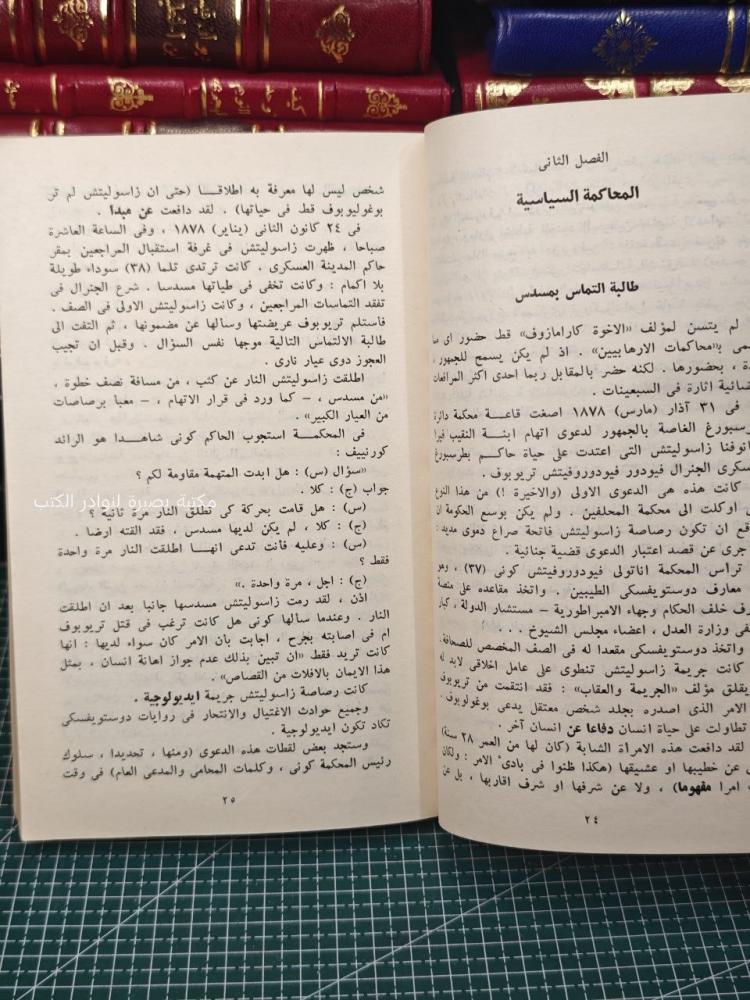 الفصل الثانى
المحاكمة السياسية
طالبة التماس بمسدس
لم يتسن لمؤلف «الاخوة كارامازوف» قط حضور اى
بـ«محاكمات الارهابيين» . اذ لم يكن يسمح للجمهور ،
، بحضورها . لكنه حضر بالمقابل ربما احدى اكثر المرافعات
اثارة فى السبعينات .
فى ٣١ آذار (مارس) ١٨٧٨ اصغت قاعة محكمة دائرة
الغاصة بالجمهور لدعوى اتهام ابنة النقيب فيرا
زاسوليتش التى اعتدت على حياة حاكم بطرسبورغ
الجنرال فيودور فيودوروفيتش تريبوف .
كانت هذه هى الدعوى الاولى (والاخيرة !) من هذا النوع
اوكلت الى محكمة المحلفين . ولم يكن بوسع الحكومة ان
ان تكون رصاصة زاسوليتش فاتحة صراع دموى مديد :
جرى عن قصد اعتبار الدعوى قضية جنائية .
تراس المحكمة اناتولى فيودوروفيتش كونى (٣٧) ، وهو
معارف دوستويفسكى الطيبين . واتخذ مقاعده على منصة
خلف الحكام وجهاء الامبراطورية – مستشار الدولة ، كبار
وزارة العدل ، اعضاء مجلس الشيوخ . . .
واتخذ دوستويفسكى مقعدا له فى الصف المخصص للصحافة .
كانت جريمة زاسوليتش تنطوى على عامل اخلاقى لابد له
يقلق مؤلف «الجريمة والعقاب» : فقد انتقمت من تريبوف
الامر الذى اصدره بجلد شخص معتقل يدعى بوغوليوبوف .
تطاولت على حياة انسان دفاعا عن انسان آخر .
لقد دافعت هذه الامراة الشابة (كان لها من العمر ٢٨ سنة)
عن خطيبها او عشيقها (هكذا ظنوا فى بادئ الامر : ولكان
امرا مفهوما) ، ولا عن شرفها او شرف اقاربها ، بل عن
٢٤
شخص ليس لها معرفة به اطلاقـــا (حتى ان زاسوليتش لم تر
بوغوليوبوف قط فى حياتها) . لقد دافعت عن مبدأ .
فى ٢٤ كانون الثانى (يناير) ١٨٧٨ ، وفى الساعة العاشرة
صباحا ، ظهرت زاسوليتش فى غرفة استقبال المراجعين بمقر
حاكم المدينة العسكرى . كانت ترتدى تلما (٣٨) سوداء طويلة
بلا اكمام : وكانت تخفى فى طياتها مسدسا . شرع الجنرال فى
تفقد التماسات المراجعين ، وكانت زاسوليتش الاولى فى الصف .
فاستلم تريبوف عريضتها وسألها عن مضمونها ، ثم التفت الى
طالبة الالتماس التالية موجها نفس السؤال . وقبل ان تجيب
العجوز دوى عيار نارى .
اطلقت زاسوليتش النار عن كثب ، من مسافة نصف خطوة ،
«من مسدس ، – كما ورد فى قرار الاتهام ، – معبا برصاصات
من العيار الكبير» .
فى المحكمـة استجوب الحاكم كونى شاهـدا هو الرائد
كورنييف :
«سؤال (س) : هل ابدت المتهمة مقاومة لكم ؟
جواب (ج) : كلا .
(س) : هل قامت بحركة كى تطلق النار مرة ثانية ؟
(ج) : كلا ، لم يكن لديها مسدس ، فقد القته ارضا .
(س) : وعليه فأنت تدعى انهـا اطلقت النار مرة واحدة
فقط ؟
(ج) : اجل ، مرة واحدة .»
اذن ، لقد رمت زاسوليتش مسدسها جانبا بعد ان اطلقت
النار . وعندما سألها كونى هل كانت ترغب فى قتل تريبوف
ام فى اصابته بجرح ، اجابت بأن الامر كان سواء لديها : انها
كانت تريد فقط «ان تبين بذلك عدم جواز اهانة انسان ، بمثل
هذا الايمان بالافلات من القصاص» .
كانت رصاصة زاسوليتش جريمة ايديولوجية .
وجميع حوادث الاغتيال والانتحار فى روايات دوستويفسكى
تكاد تكون ايديولوجية .
وستجد بعض لقطات هذه الدعوى (ومنها ، تحديدا ، سلوك
رئيس المحكمة كونى ، وكلمات المحامى والمدعى العام) فى وقت
٢٥
مكتبة بصيرة لنوادر الكتب